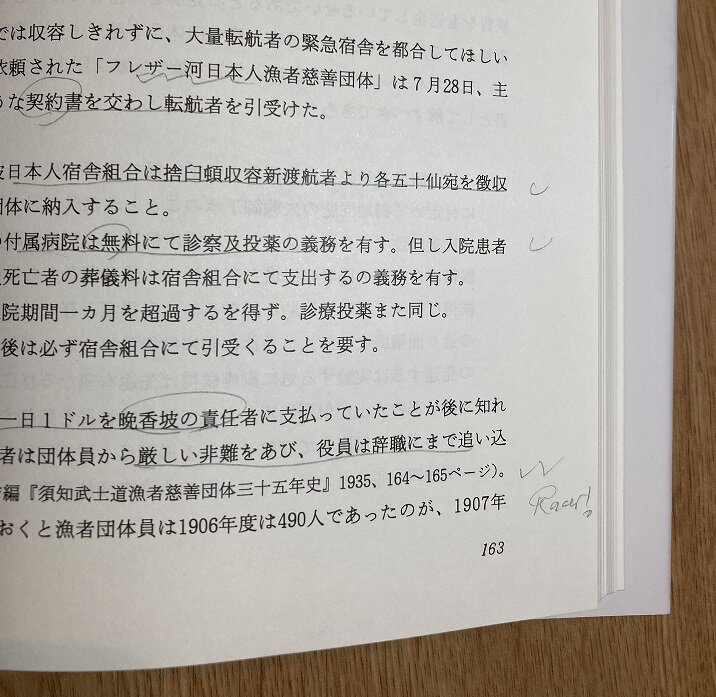 では収容しきれずに、大量転航者の緊急宿舎を都合してほしい
依頼された「フレザー河日本人漁者慈善団体」は7月28日、主
うな契約書を交わし転航者を引受けた。
日本人宿舎組合は捨臼頓収容新渡航者より各五十仙宛を徴収
団体に納入すること。
付属病院は無料にて診察及投薬の義務を有す。但し入院患者
死亡者の葬儀料は宿舎組合にて支出するの義務を有す。
院期間一カ月を超過するを得ず。診療投薬また同じ。
後は必ず宿舎組合にて引受くることを要す。
一日1ドルを晩香坡の責任者に支払っていたことが後に知れ
者は団体員から厳しい非難をあび、役員は辞職にまで追い込
編『須知武士道漁者慈善団体三十五年史』1935、164〜165ページ)。
おくと漁者団体員は1906年度は490人であったのが、1907年
163